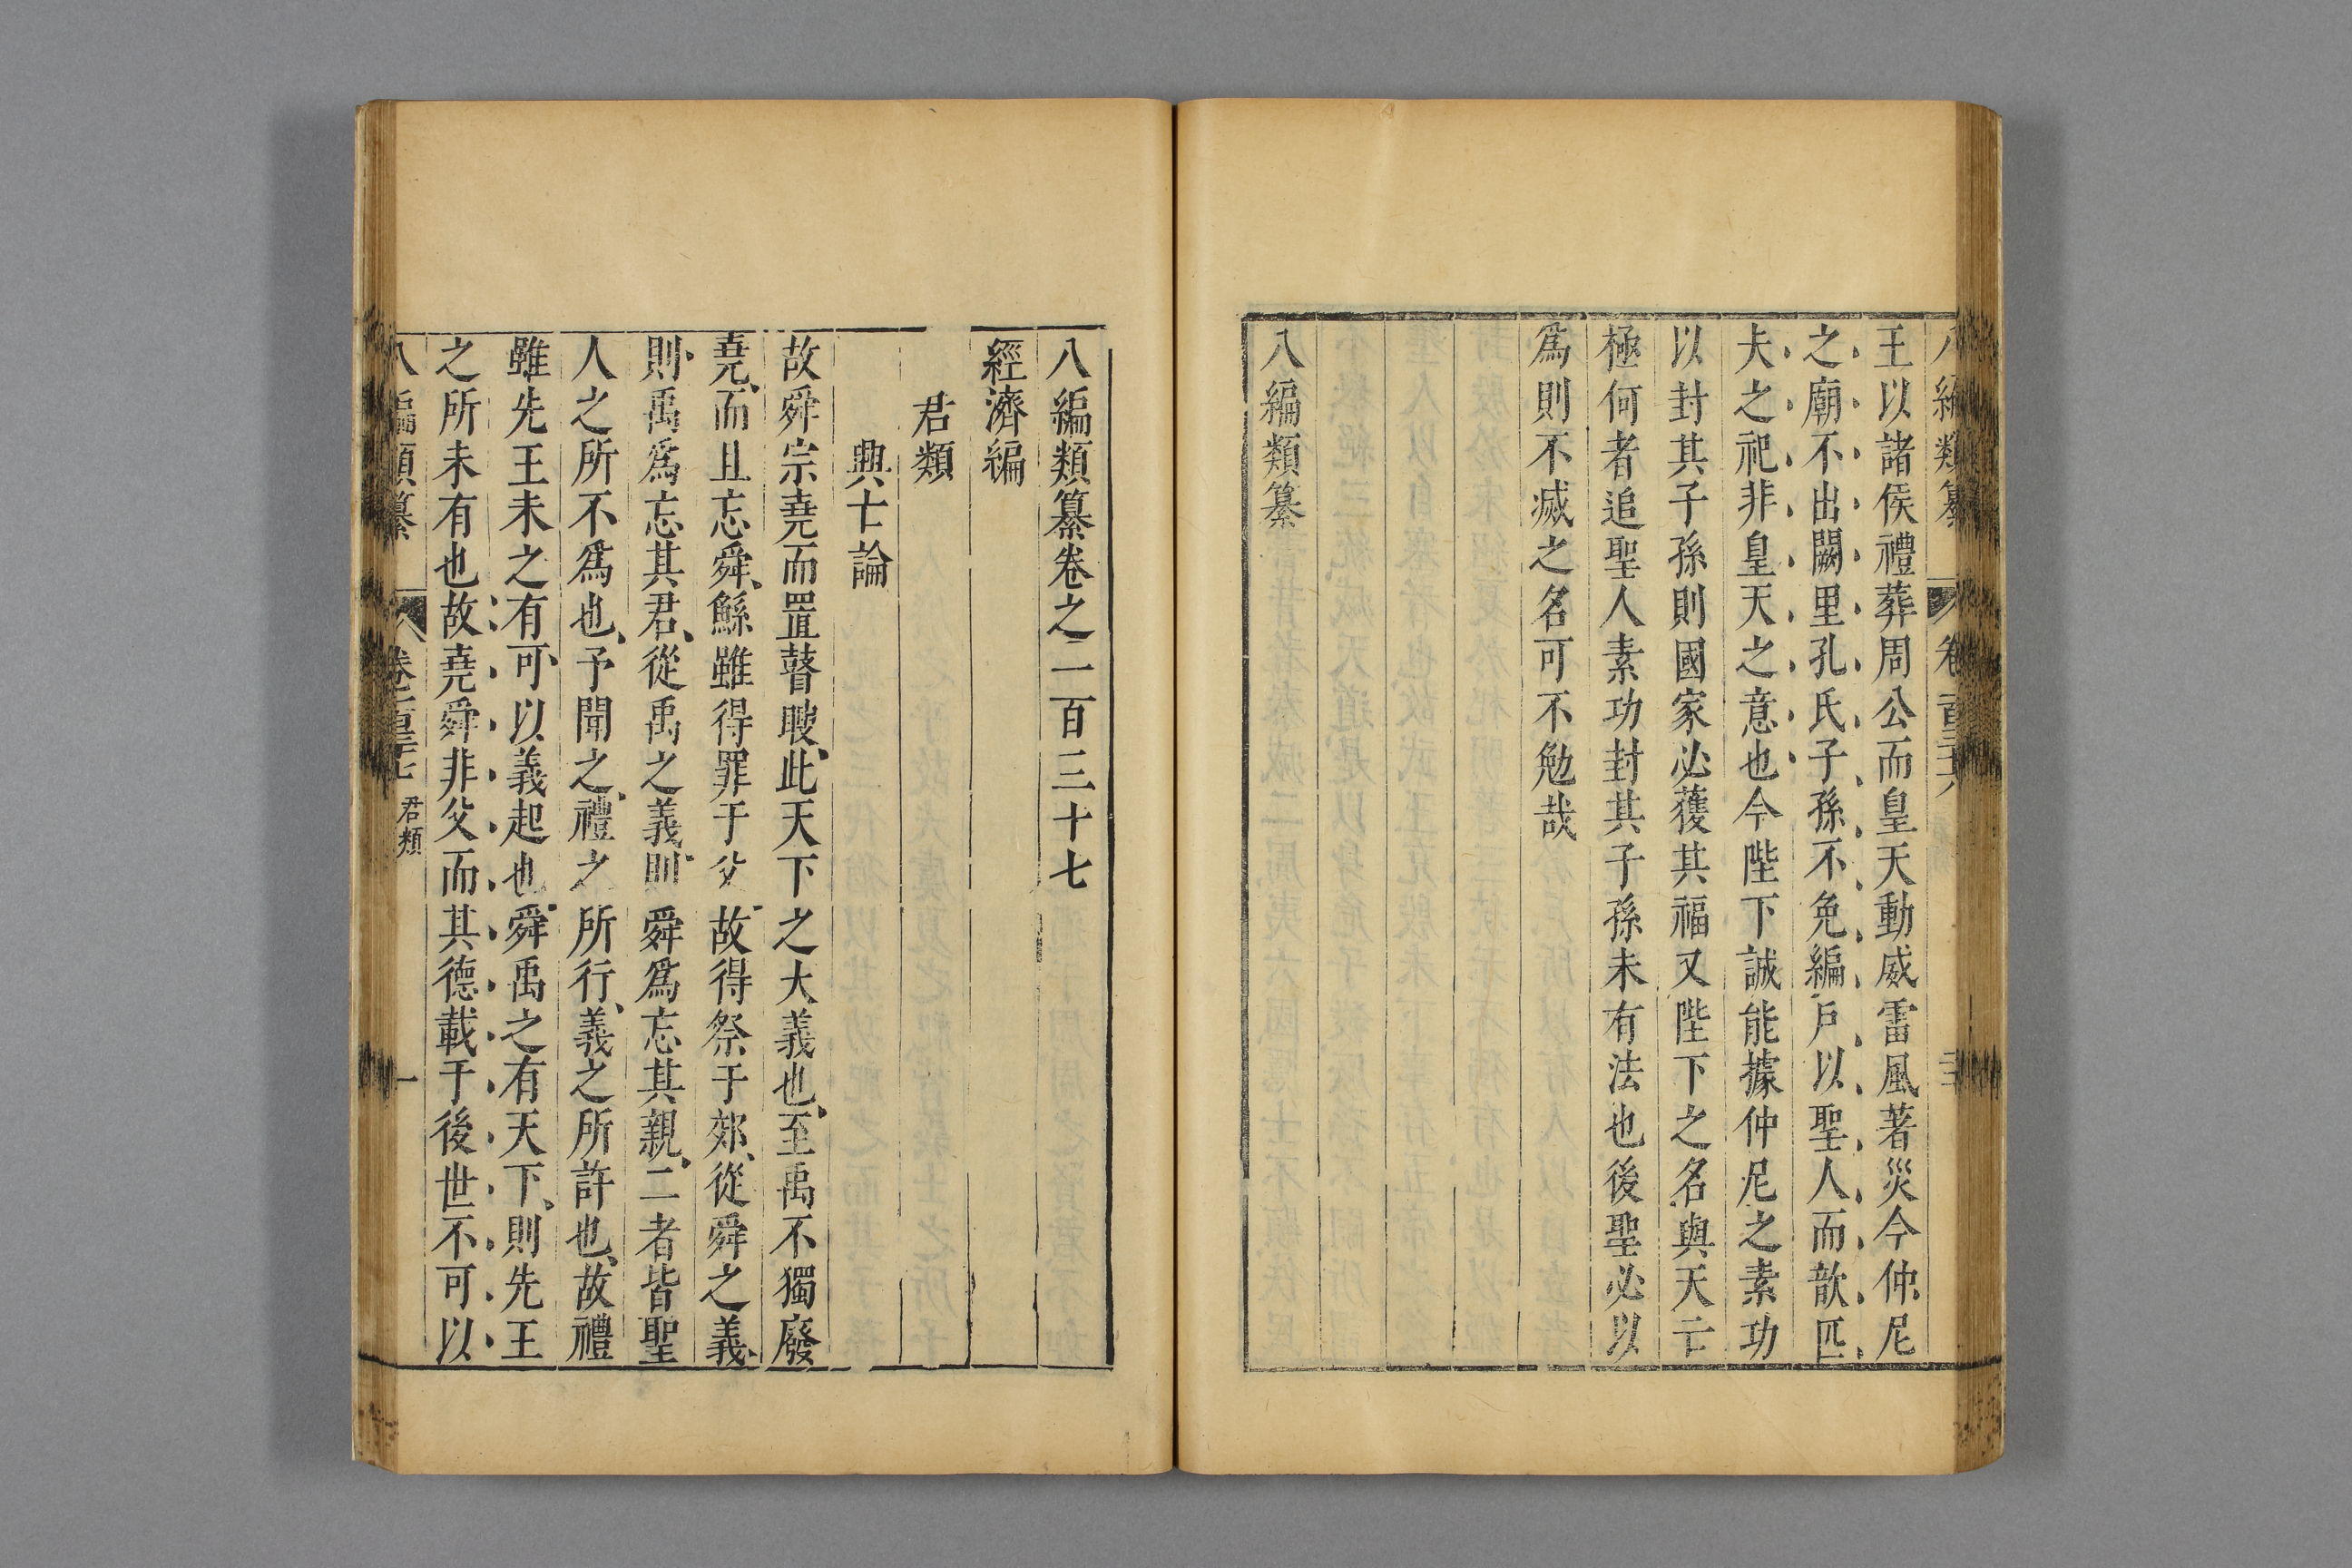 王以諸侯禮葬周公而皇天動威雷風著災今仲尼
之廟不出闕里孔氏子孫不免編戶以聖人而歆匹
夫之祀非皇天之意也今陛下誠能據仲尼之素功
以封其子孫則國家必獲其福又陛下之名與天亡
極何者追聖人素功封其子孫未有法也後聖必以
爲則不滅之名可不勉哉
八編類纂
八編類纂卷之二百三十七
經濟編
君類
興亡論
故舜宗堯而罝瞽瞍此天下之大義也至禹不獨廢
堯而且忘舜鯀雖得罪于父故得祭于郊從舜之義
則禹爲忘其君從禹之義則舜爲忘其親二者皆聖
人之所不爲也予聞之禮之所行義之所許也故禮
雖先王未之有可以義起也舜禹之有天下則先王
之所未有也故堯舜非父而其德載于後世不可以
八編類纂 卷二百三十七 君類 一